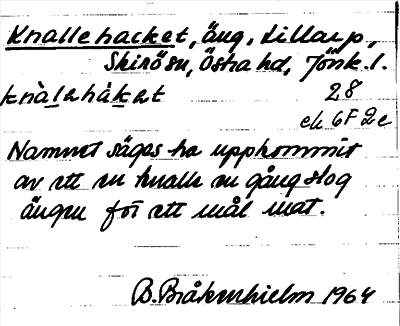 Knallehacket, äng, Lillarp,
Skirö sn, Östra hd, Jönk. l.
knàlahàkat 28
ek 6F 2c
Namnet säges ha uppkommit
av att en knalle en gång slog
ängen för ett mål mat.
B. Bråkenhielm 1964